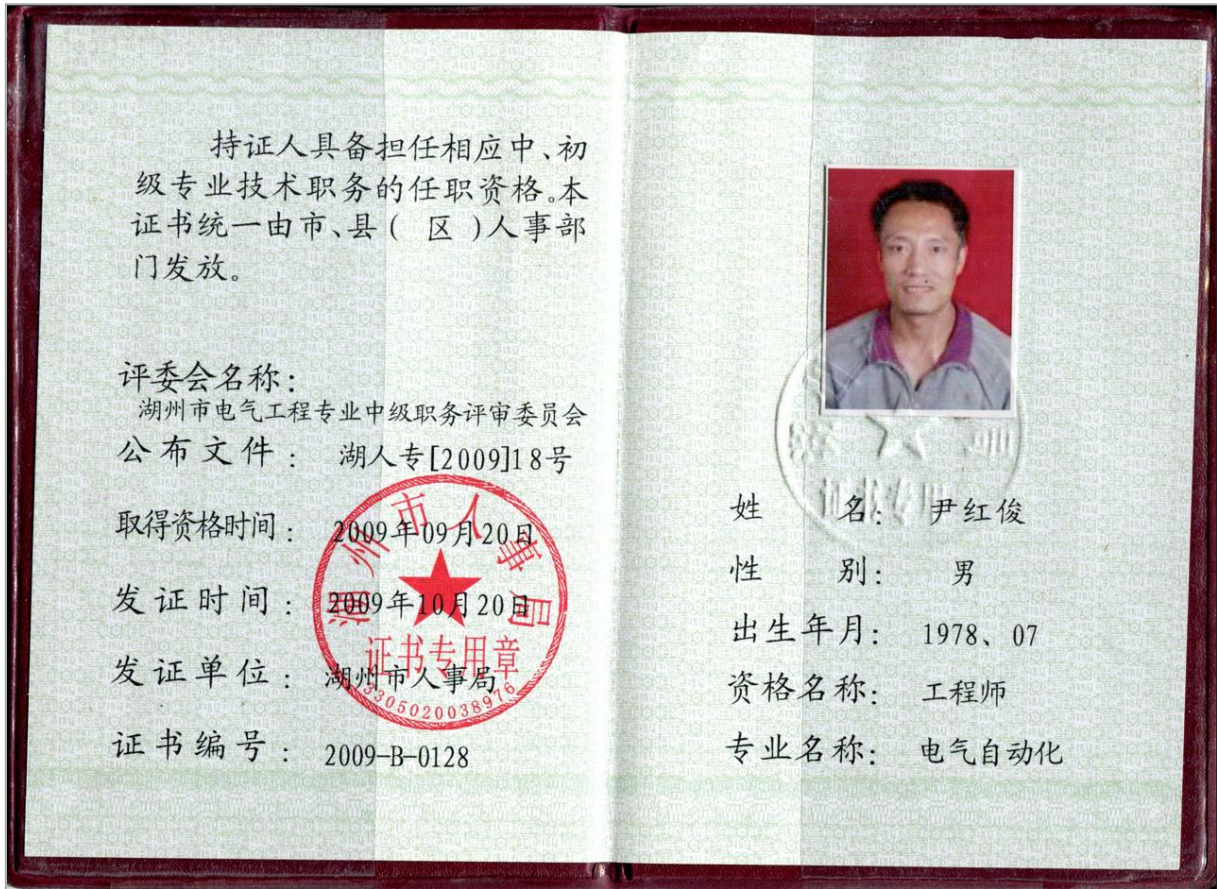 持证人具备担任相应中、初
级专业技术职务的任职资格。本
证书统一由市、县（ 区 ）人事部
门发放。
评委会名称：
湖州市电气工程专业中级职务评审委员会
公布文件： 湖人专[2009]18号
取得资格时间： 2009年09月20日
发证时间： 2009年10月20日
发证单位： 湖州市人事局
证书编号： 2009-B-0128
湖州市人事局
证书专用章
3305020038976
证书专用
姓 名： 尹红俊
性 别： 男
出生年月： 1978、07
资格名称： 工程师
专业名称： 电气自动化